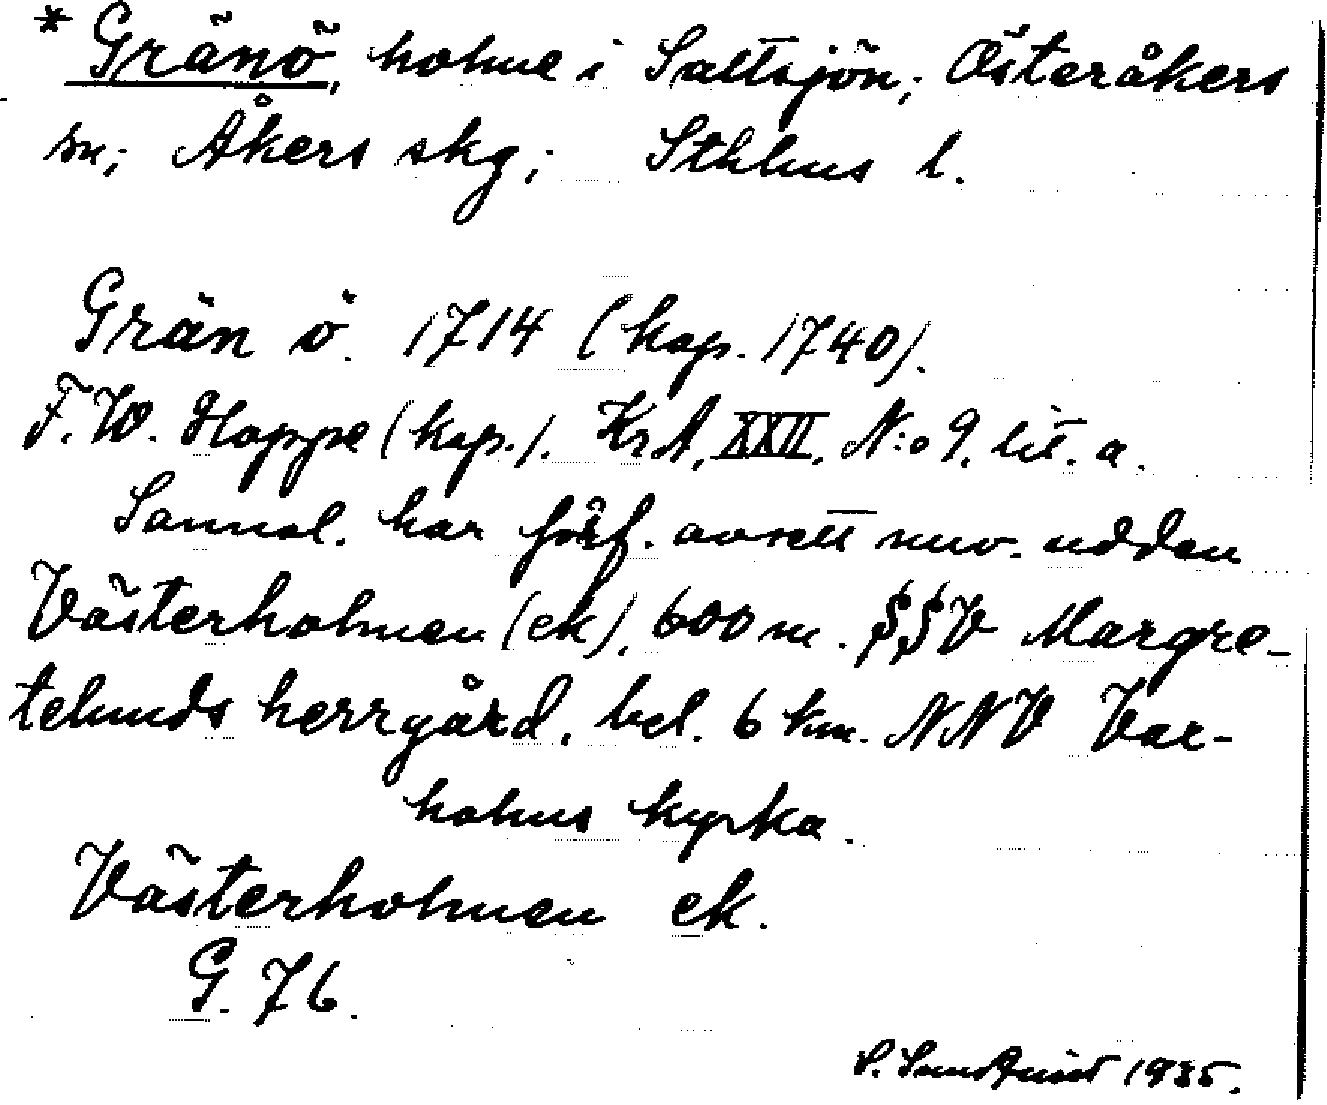 * Gränö, holme i Saltsjön; Österåkers
sn; Åkers skg; Sthlms l.
Grän ö. 1714 (kop. 1740).
F. W. Hoppe (kop.). KrA, XXII, N:o 9. lit. a.
Sannol. har förf. avsett nuv. udden
Västerholmen (ek), 600 m. SSV Margre-
telunds herrgård, bel. 6 km. NNV Vax-
holms kyrka.
Västerholmen ek.
G. 76.
S. Sundquist 1935.